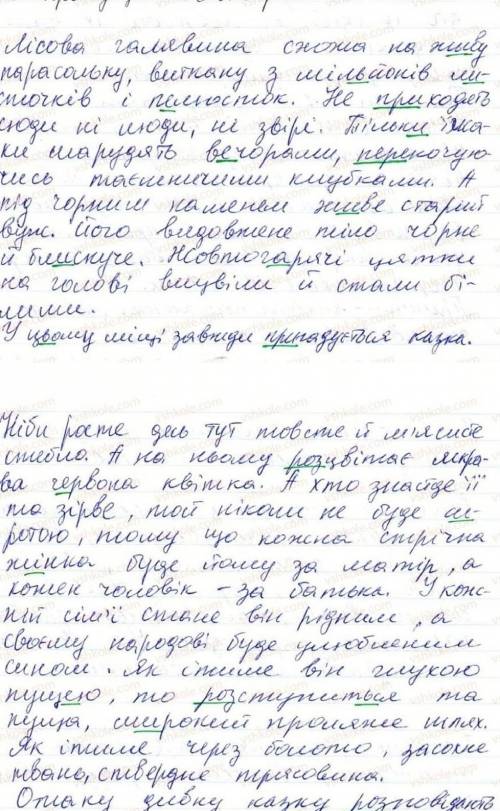 Лісова галявина схожа на живу
парасольку, виткану з мільйонів ли-
сточків і пелюсток. Не приходять
сюди ні люди, ні звірі. Тільки їжа-
ки шарудять вечорами, перекочую-
чись таємничими клубками. А
під чорним каменем живе старий
вуж. Його видовжене тіло чорне
й блискуче. Жовтогарячі цятки
на голові вицвіли й стали бі-
лими.
У цьому місці завжди пригадується казка.
Ніби росте десь тут товсте й м'ясисте
стебло. А на ньому розцвітає яскра-
ва червона квітка. А хто знайде її
та зірве, той ніколи не буде си-
ротою, тому що кожна стрічна
жінка буде йому за матір, а
кожен чоловік - за батька. У кож-
ній сім'ї стане він рідним, а
своєму народові буде улюбленим
сином. Як ітиме він глухою
пущею, то розступиться та
пуща, широкий проляже шлях.
Як ітиме через болото, засохне
твань, ствердне трясовина.
Отаку дивну казку розповідають